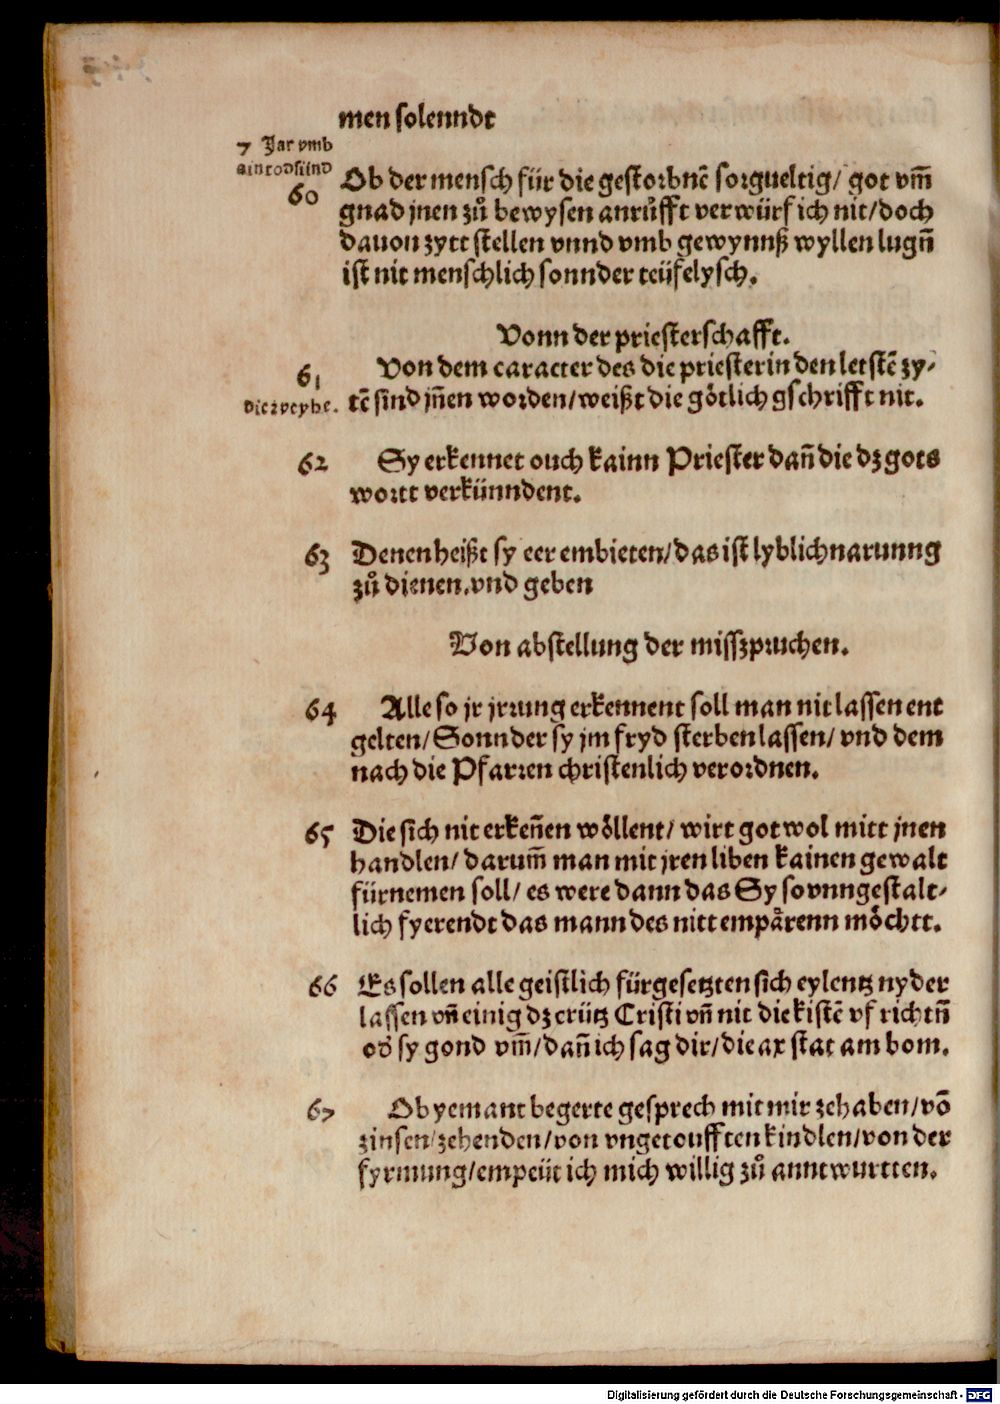 men solenndt
7 Jar vmb
ain todsünd
60 Ob der mensch für die gestorbnē sorgueltig/ got vm̄
gnad jnen zů bewysen anrůfft verwürf ich nit/doch
dauon zytt stellen vnnd vmb gewynnß wyllen lugn̄
ist nit menschlich sonnder teüfelysch.
Vonn der priesterschafft.
61 Von dem caracter des die priester in den letstē zy⸗
die zweyhe. tē sind jn̄en worden/weißt die götlich gschrifft nit.
62 Sy erkennet ouch kainn Priester dan̄ die dz gots
wortt verkünndent.
63 Denen heißt sy eer embieten/das ist lyblich narunng
zů dienen.vnd geben
Von abstellung der misszpruchen.
64 Alle so jr jrrung erkennent soll man nit lassen ent
gelten/Sonnder sy jm fryd sterben lassen/ vnd dem
nach die Pfarren christenlich verordnen.
65 Die sich nit erken̄en wöllent/ wirt got wol mitt jnen
handlen/ darum̄ man mit jren liben kainen gewalt
fürnemen soll/ es were dann das Sy so vnngestalt⸗
lich fyerendt das mann des nitt empärenn möchtt.
66 Es sollen alle geistlich fürgesetzten sich eylentz nyder
lassen vn̄ einig dz crütz Cristi vn̄ nit die kistē vf richtn̄
od̕ sy gond vm̄/dan̄ ich sag dir/die ax stat am bom.
67 Ob yemant begerte gesprech mit mir zehaben/vō
zinsen/zehenden/von vngetoufften kindlen/von der
fyrmung/empeüt ich mich willig zů anntwurtten.
Digitalisierung gefördert durch die Deutsche Forschungsgemeinschaft - DFG